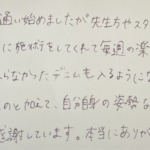 通い始めましたが先生方やスタ
に施術をしてくれて毎週の楽
らなかったデニムも入るようにな
のと加えて、自分自身の姿勢な
感謝しています。本当にありが